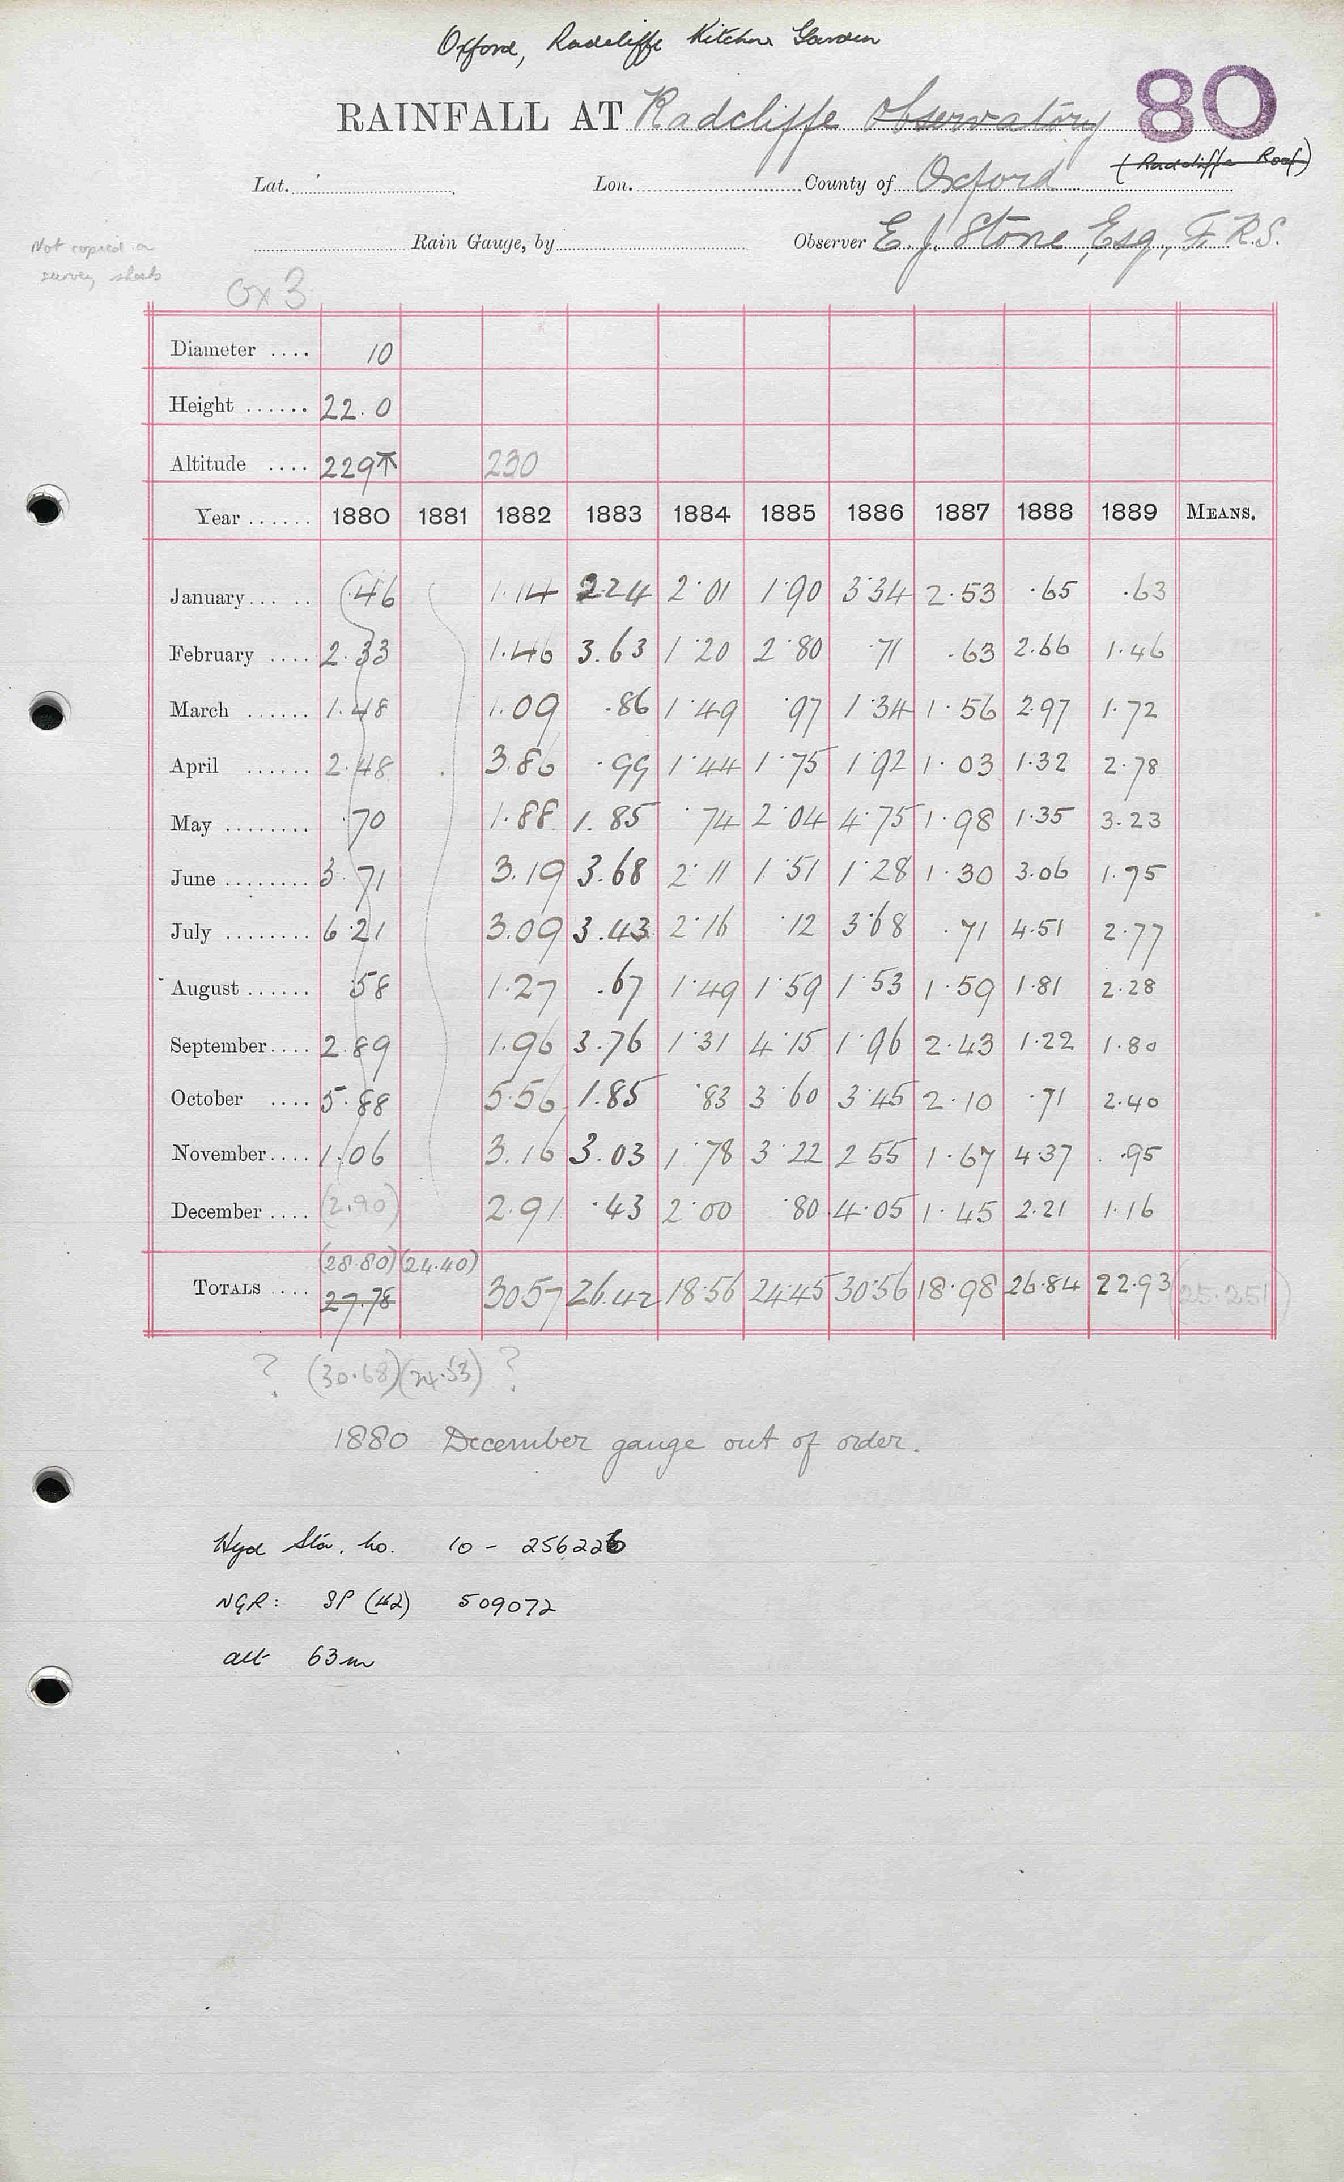 Oxford, Radcliffe Kitchen Garden
RAINFALL AT Radcliffe Observatory 80
(Radcliffe Roof)
Lat. Lon. County of Oxford
Not copied on
survey sheets
Rain Gauge, by Observer E. J. Stone, Esq., F.R.S.
Ox 3
Diameter .... 10
Height ...... 22.0
Altitude .... 229 230
Year ...... 1880 1881 1882 1883 1884 1885 1886 1887 1888 1889 MEANS.
January ...... (.46 1.14 2.24 2.01 1.90 3.34 2.53 .65 .63
February .... 2.33 1.46 3.63 1.20 2.80 .71 .63 2.66 1.46
March ...... 1.48 1.09 .86 1.49 .97 1.34 1.56 2.97 1.72
April ...... 2.48 3.86 .99 1.44 1.75 1.92 1.03 1.32 2.78
May ........ .70 1.88 1.85 .74 2.04 4.75 1.98 1.35 3.23
June ........ 3.71 3.19 3.68 2.11 1.51 1.28 1.30 3.06 1.75
July ........ 6.21 3.09 3.43 2.16 .12 3.68 .71 4.51 2.77
August ...... .58 1.27 .67 1.49 1.59 1.53 1.59 1.81 2.28
September .... 2.89 1.96 3.76 1.31 4.15 1.96 2.43 1.22 1.80
October .... 5.88 5.56 1.85 .83 3.60 3.45 2.10 .71 2.40
November .... 1.06 3.16 3.03 1.78 3.22 2.55 1.67 4.37 .95
December .... (2.90) 2.91 .43 2.00 .80 4.05 1.45 2.21 1.16
(28.80) (24.40)
TOTALS .... 27.78 30.57 26.42 18.56 24.45 30.56 18.98 26.84 22.93 (25.251)
? (30.68) (24.53) ?
1880 December gauge out of order.
Hyd Sta. no. 10 - 256226
NGR: SP (42) 509072
alt 63m